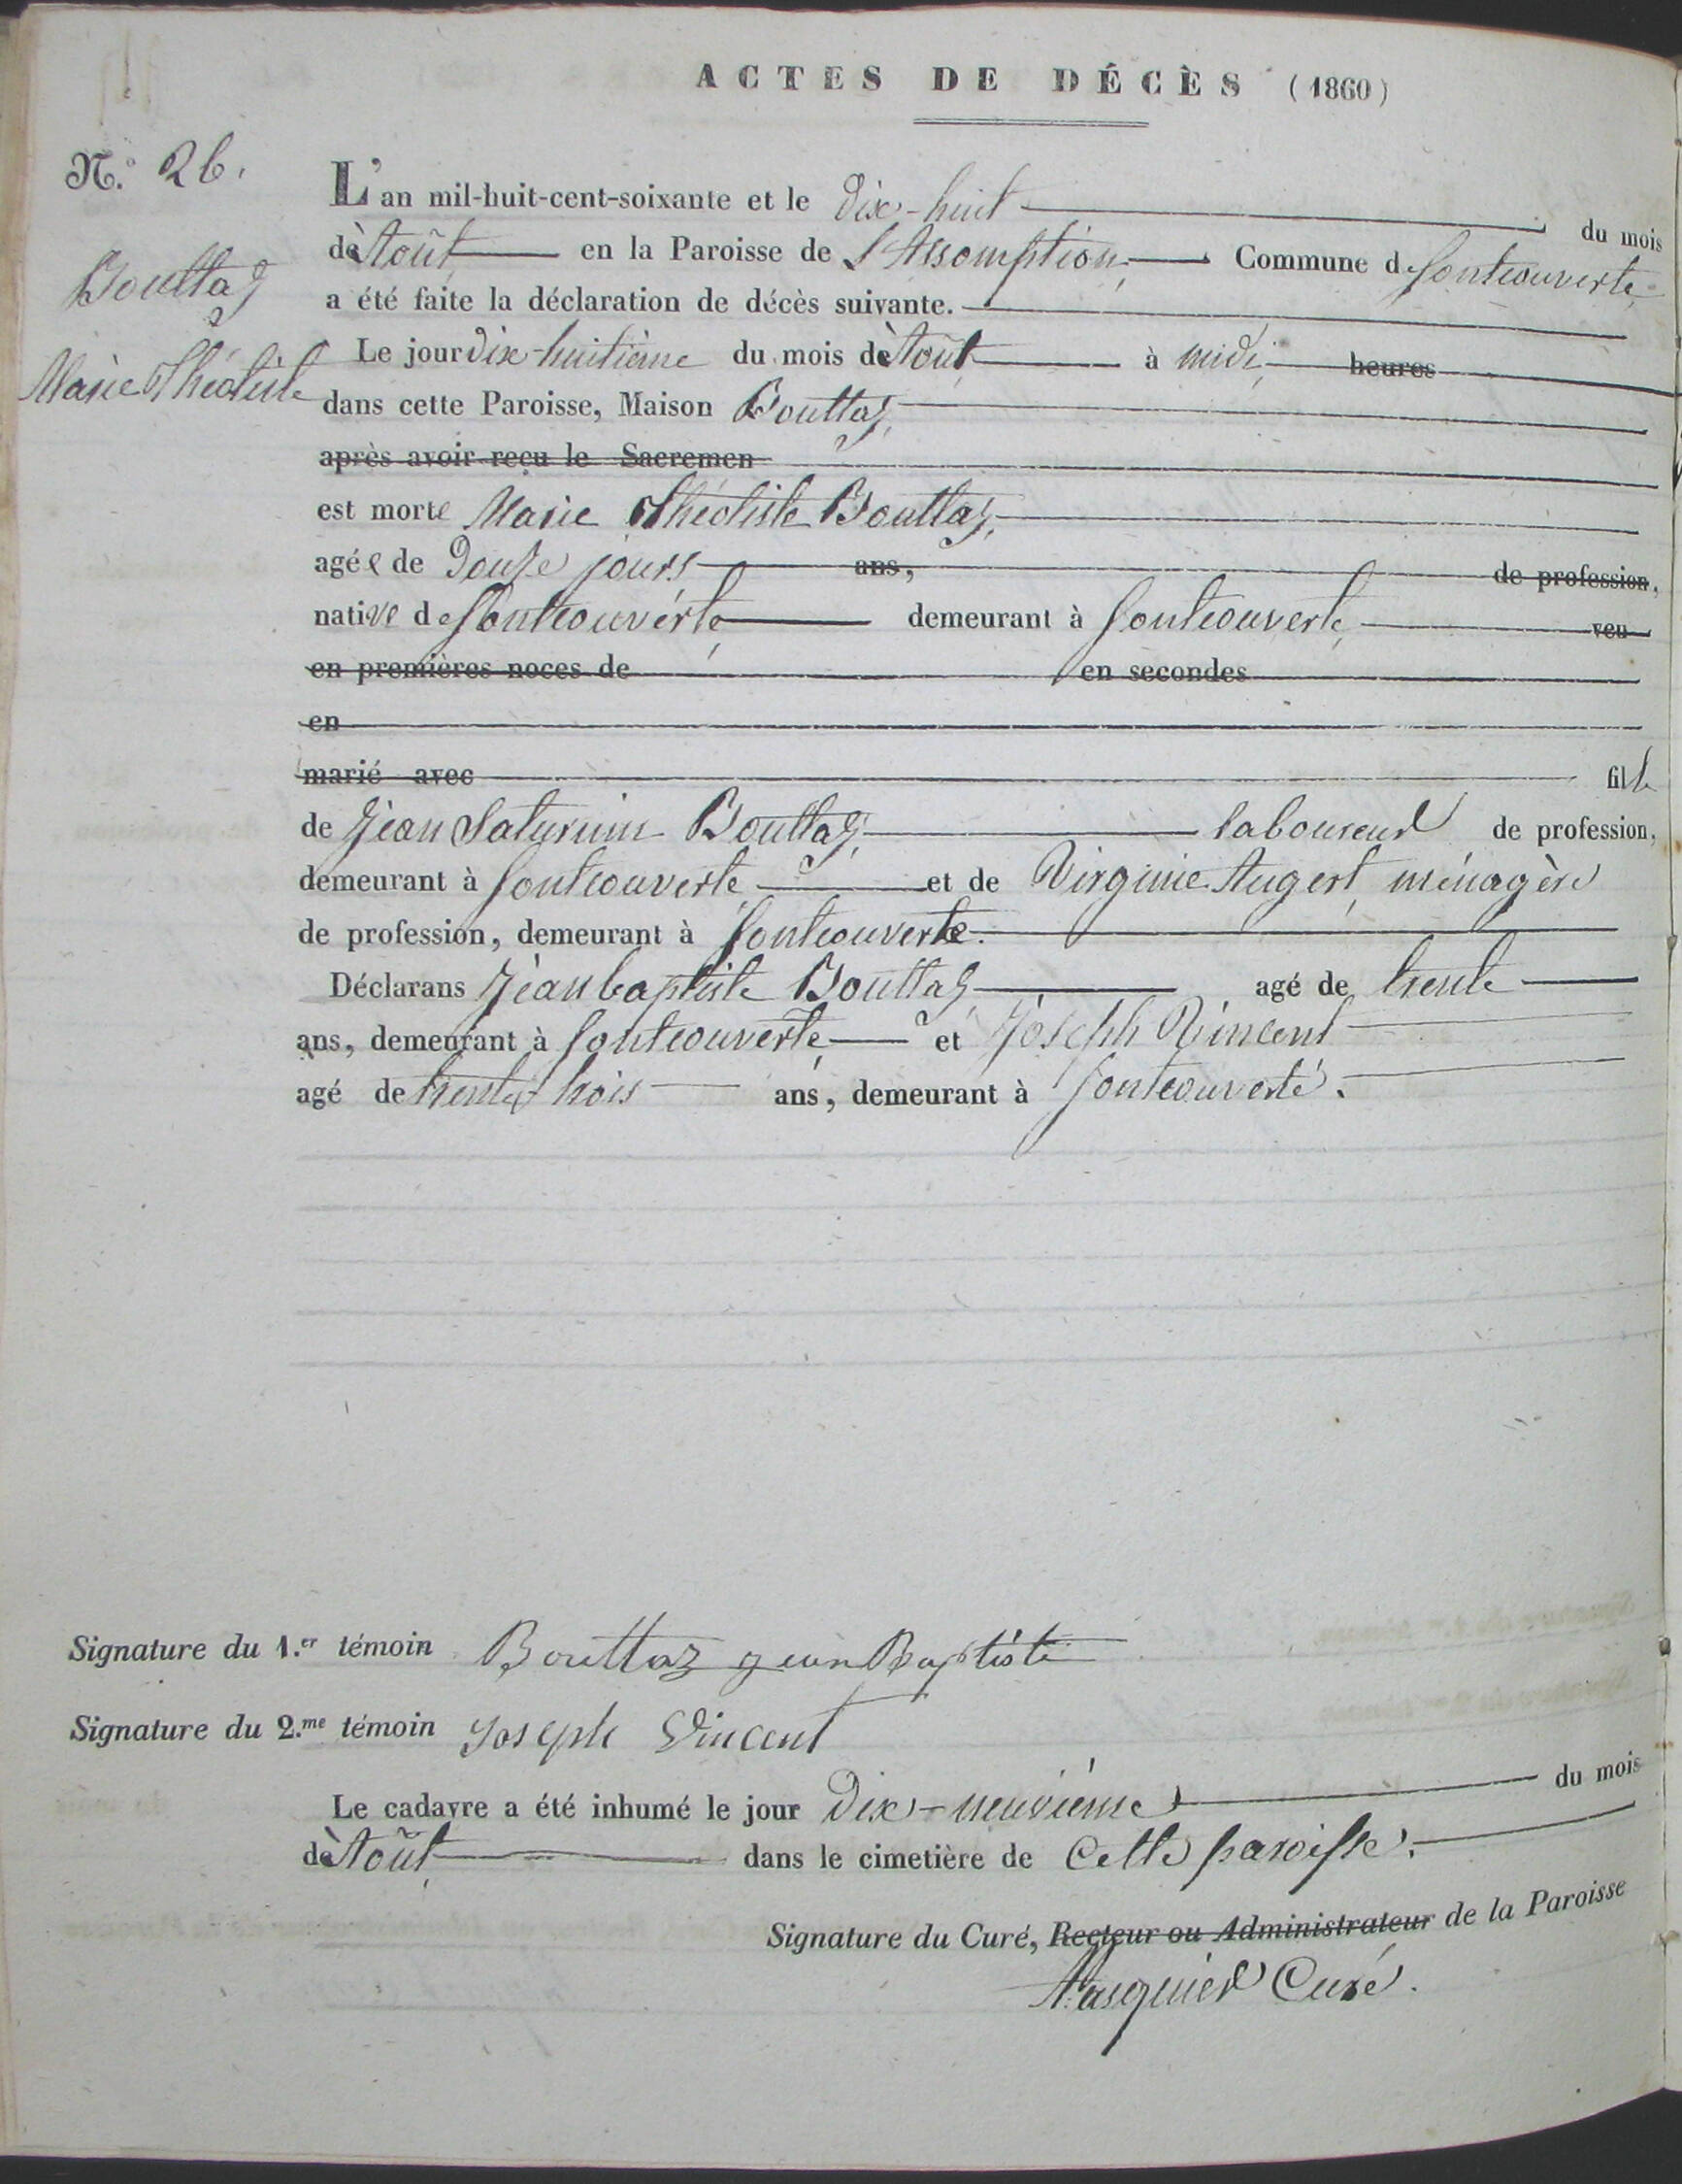 ACTES DE DÉCÈS (1860)
N.º 26.
Bouttaz
Marie Théotiste
L'an mil-huit-cent-soixante et le dix-huit du mois
d'Août en la Paroisse de l'Assomption, Commune de fontcouverte
a été faite la déclaration de décès suivante.
Le jour dix-huitième du mois d'Août à midi heures
dans cette Paroisse, Maison Bouttaz,
après avoir reçu le Sacremen
est morte Marie Théotiste Bouttaz,
agée de Douze jours ans, de profession,
native de fontcouverte demeurant à fontcouverte, veu
en premières noces de en secondes
en
marié avec fille
de Jean Saturnin Bouttaz, laboureur de profession,
demeurant à fontcouverte et de Virginie Augert, ménagère
de profession, demeurant à fontcouverte.
Déclarans Jean baptiste Bouttaz agé de trente
ans, demeurant à fontcouverte, et Joseph Vincent
agé de trente trois ans, demeurant à fontcouverte.
Signature du 1.er témoin Bouttaz jean Baptiste
Signature du 2.me témoin Joseph Vincent
Le cadavre a été inhumé le jour dix-neuvième du mois
d'Août dans le cimetière de cette paroisse.
Signature du Curé, Recteur ou Administrateur de la Paroisse
Curé.